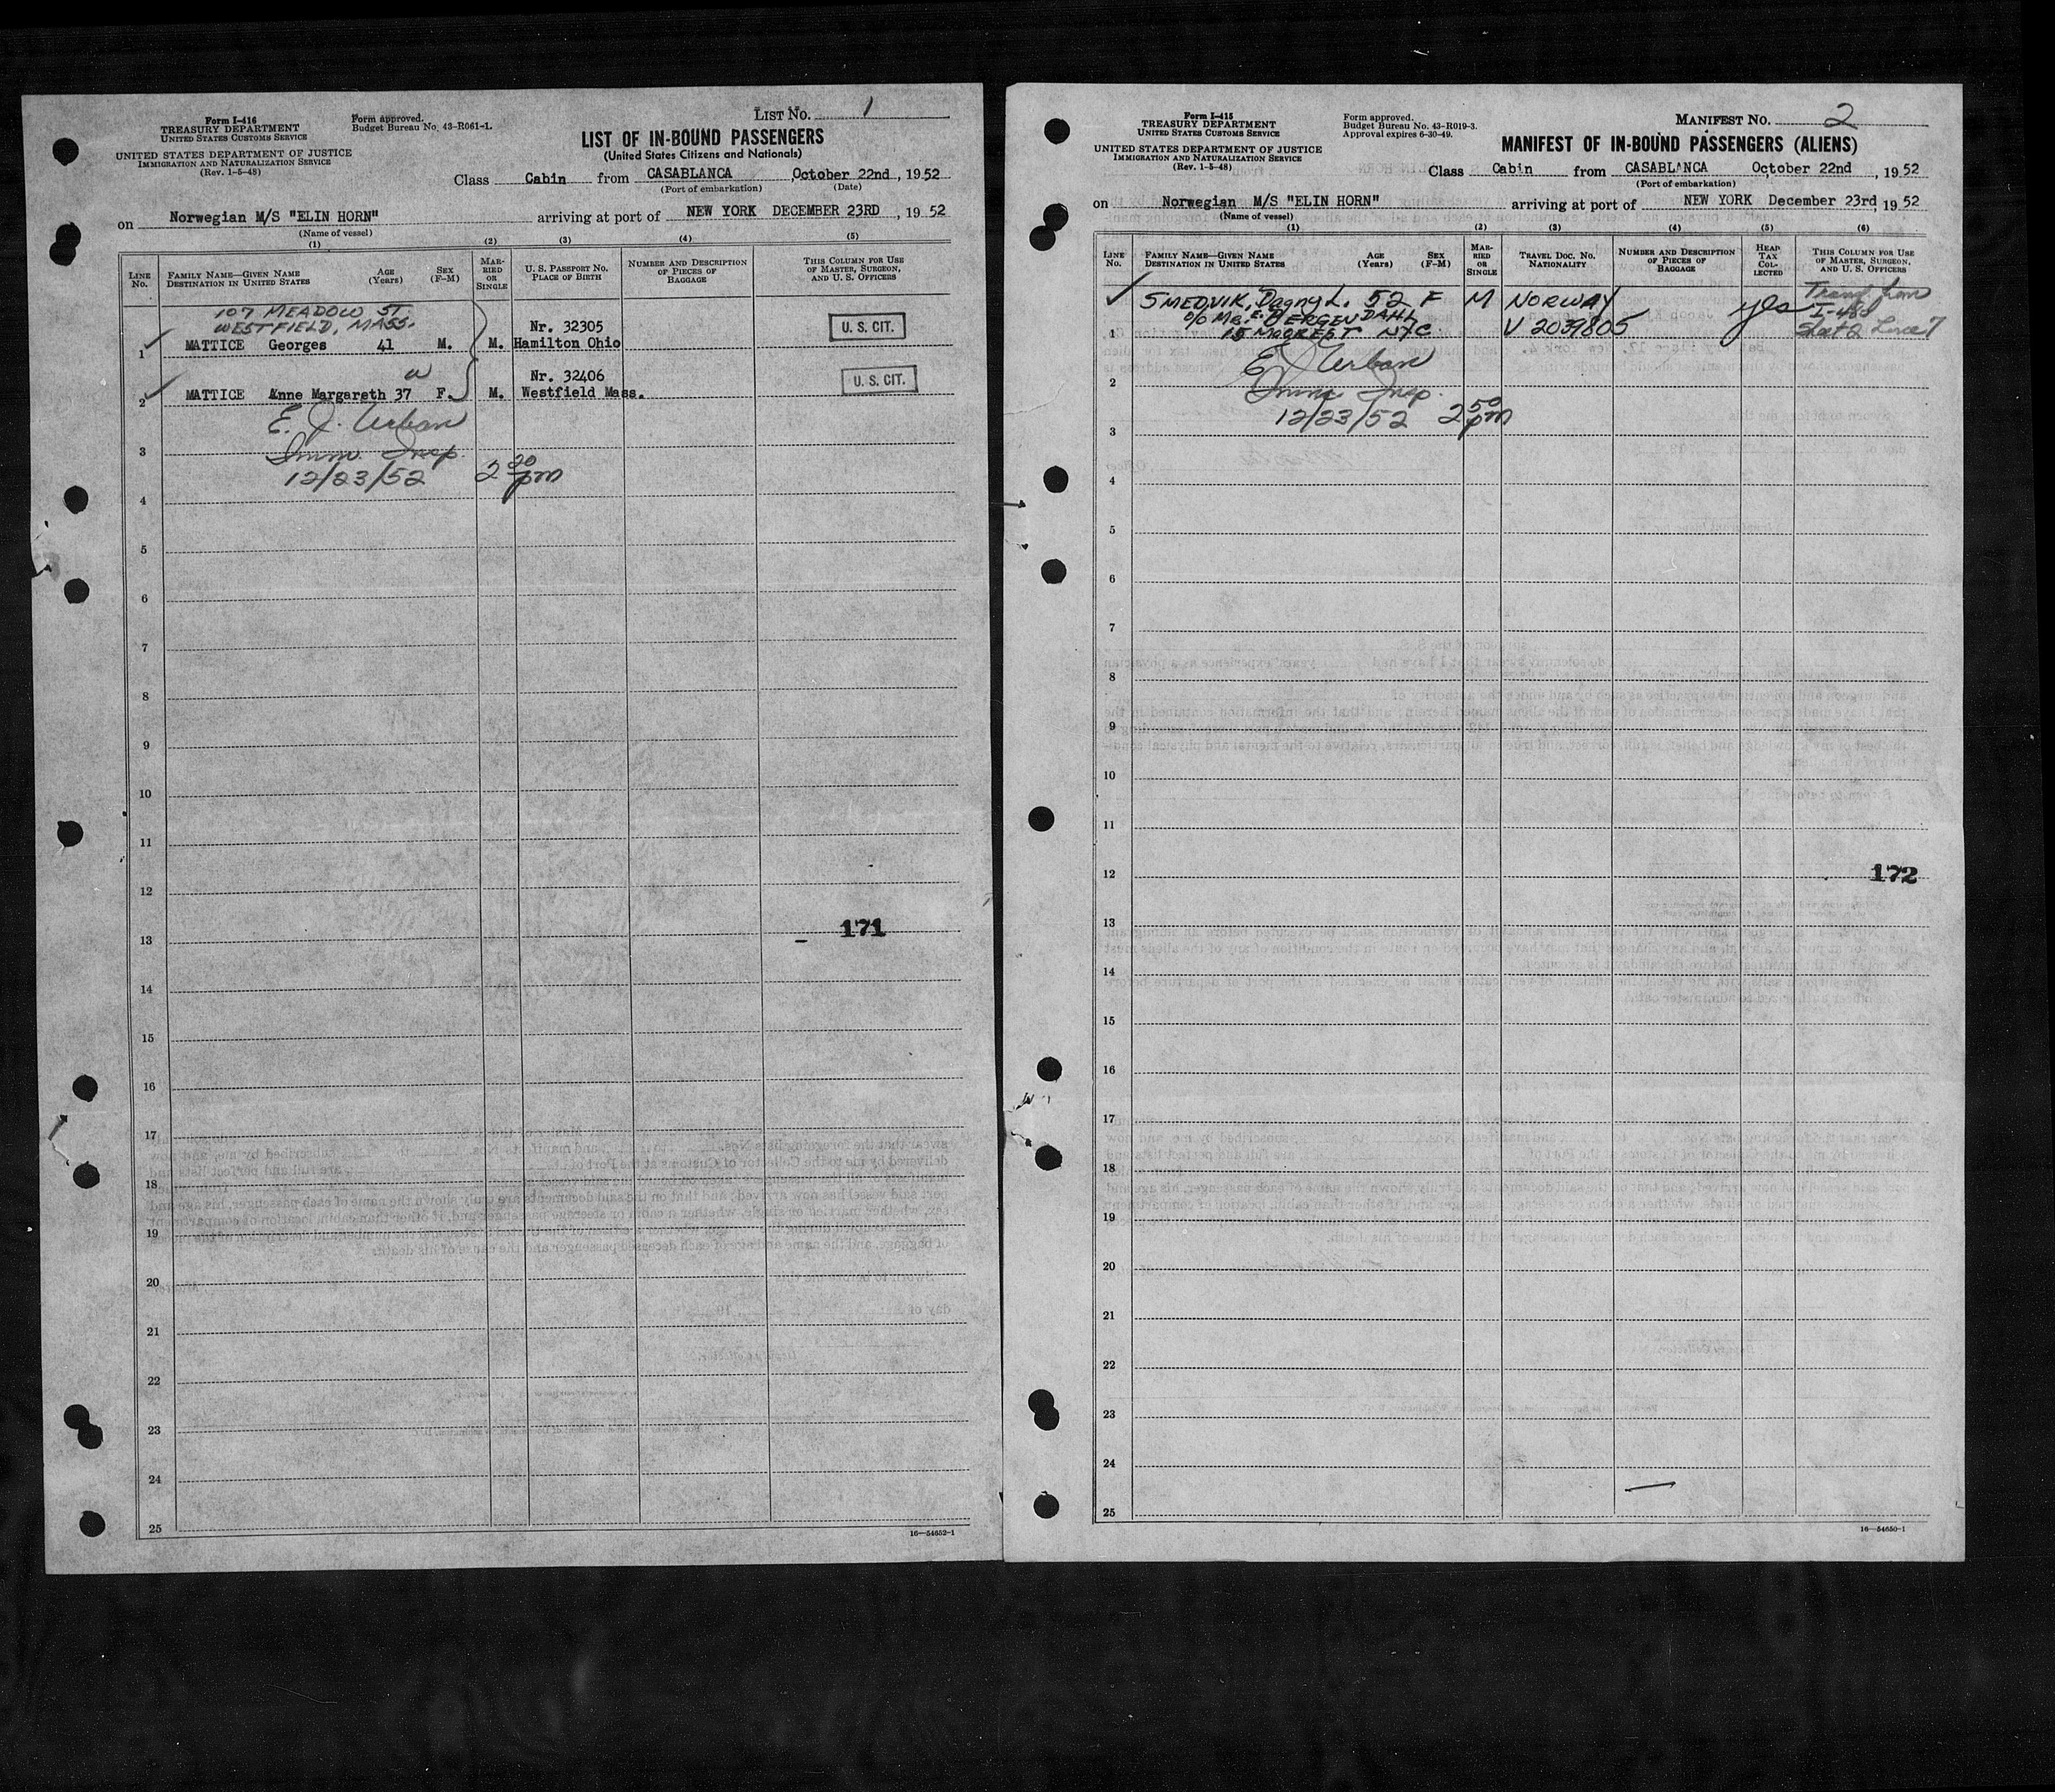 Form I-416
TREASURY DEPARTMENT
UNITED STATES CUSTOMS SERVICE
UNITED STATES DEPARTMENT OF JUSTICE
IMMIGRATION AND NATURALIZATION SERVICE
(Rev. 1-5-48)
Form approved.
Budget Bureau No. 43-R061-1.
LIST No. 1
LIST OF IN-BOUND PASSENGERS
(United States Citizens and Nationals)
Class Cabin from CASABLANCA, October 22nd, 1952
(Port of embarkation) (Date)
on Norwegian M/S "ELIN HORN" arriving at port of NEW YORK DECEMBER 23RD, 1952
(Name of vessel)
(1) (2) (3) (4) (5)
LINE No. FAMILY NAME—GIVEN NAME DESTINATION IN UNITED STATES AGE (Years) SEX (F-M) MARRIED OR SINGLE U. S. PASSPORT NO. PLACE OF BIRTH NUMBER AND DESCRIPTION OF PIECES OF BAGGAGE THIS COLUMN FOR USE OF MASTER, SURGEON, AND U. S. OFFICERS
107 MEADOW ST.
WESTFIELD, MASS. Nr. 32305 U. S. CIT.
1 MATTICE Georges 41 M. M. Hamilton Ohio
W Nr. 32406 U. S. CIT.
2 MATTICE Anne Margareth 37 F. M. Westfield Mass.
E. J. Urban
3 Imm. Insp.
12/23/52 2 20 pm
4
5
6
7
8
9
10
11
12
171
13
14
15
16
17
18
19
20
21
22
23
24
25
16—54652-1
Form I-415
TREASURY DEPARTMENT
UNITED STATES CUSTOMS SERVICE
UNITED STATES DEPARTMENT OF JUSTICE
IMMIGRATION AND NATURALIZATION SERVICE
(Rev. 1-5-48)
Form approved.
Budget Bureau No. 43-R019-3.
Approval expires 6-30-49.
MANIFEST No. 2
MANIFEST OF IN-BOUND PASSENGERS (ALIENS)
Class Cabin from CASABLANCA October 22nd, 1952
(Port of embarkation)
on Norwegian M/S "ELIN HORN" arriving at port of NEW YORK December 23rd, 1952
(Name of vessel)
(1) (2) (3) (4) (5) (6)
LINE No. FAMILY NAME—GIVEN NAME DESTINATION IN UNITED STATES AGE (Years) SEX (F-M) MARRIED OR SINGLE TRAVEL DOC. NO. NATIONALITY NUMBER AND DESCRIPTION OF PIECES OF BAGGAGE HEAD TAX COLLECTED THIS COLUMN FOR USE OF MASTER, SURGEON, AND U. S. OFFICERS
SMEDVIK, Dagny L. 52 F M NORWAY yes Transf from
c/o MR. E. BERGENDAHL I-480
1 15 MOORE ST NYC V 2039805 Sheet 2 Line 7
E J Urban
2 Imm Insp.
12/23/52 2 50 pm
3
4
5
6
7
8
9
10
11
12 172
13
14
15
16
17
18
19
20
21
22
23
24
25
16—54650-1